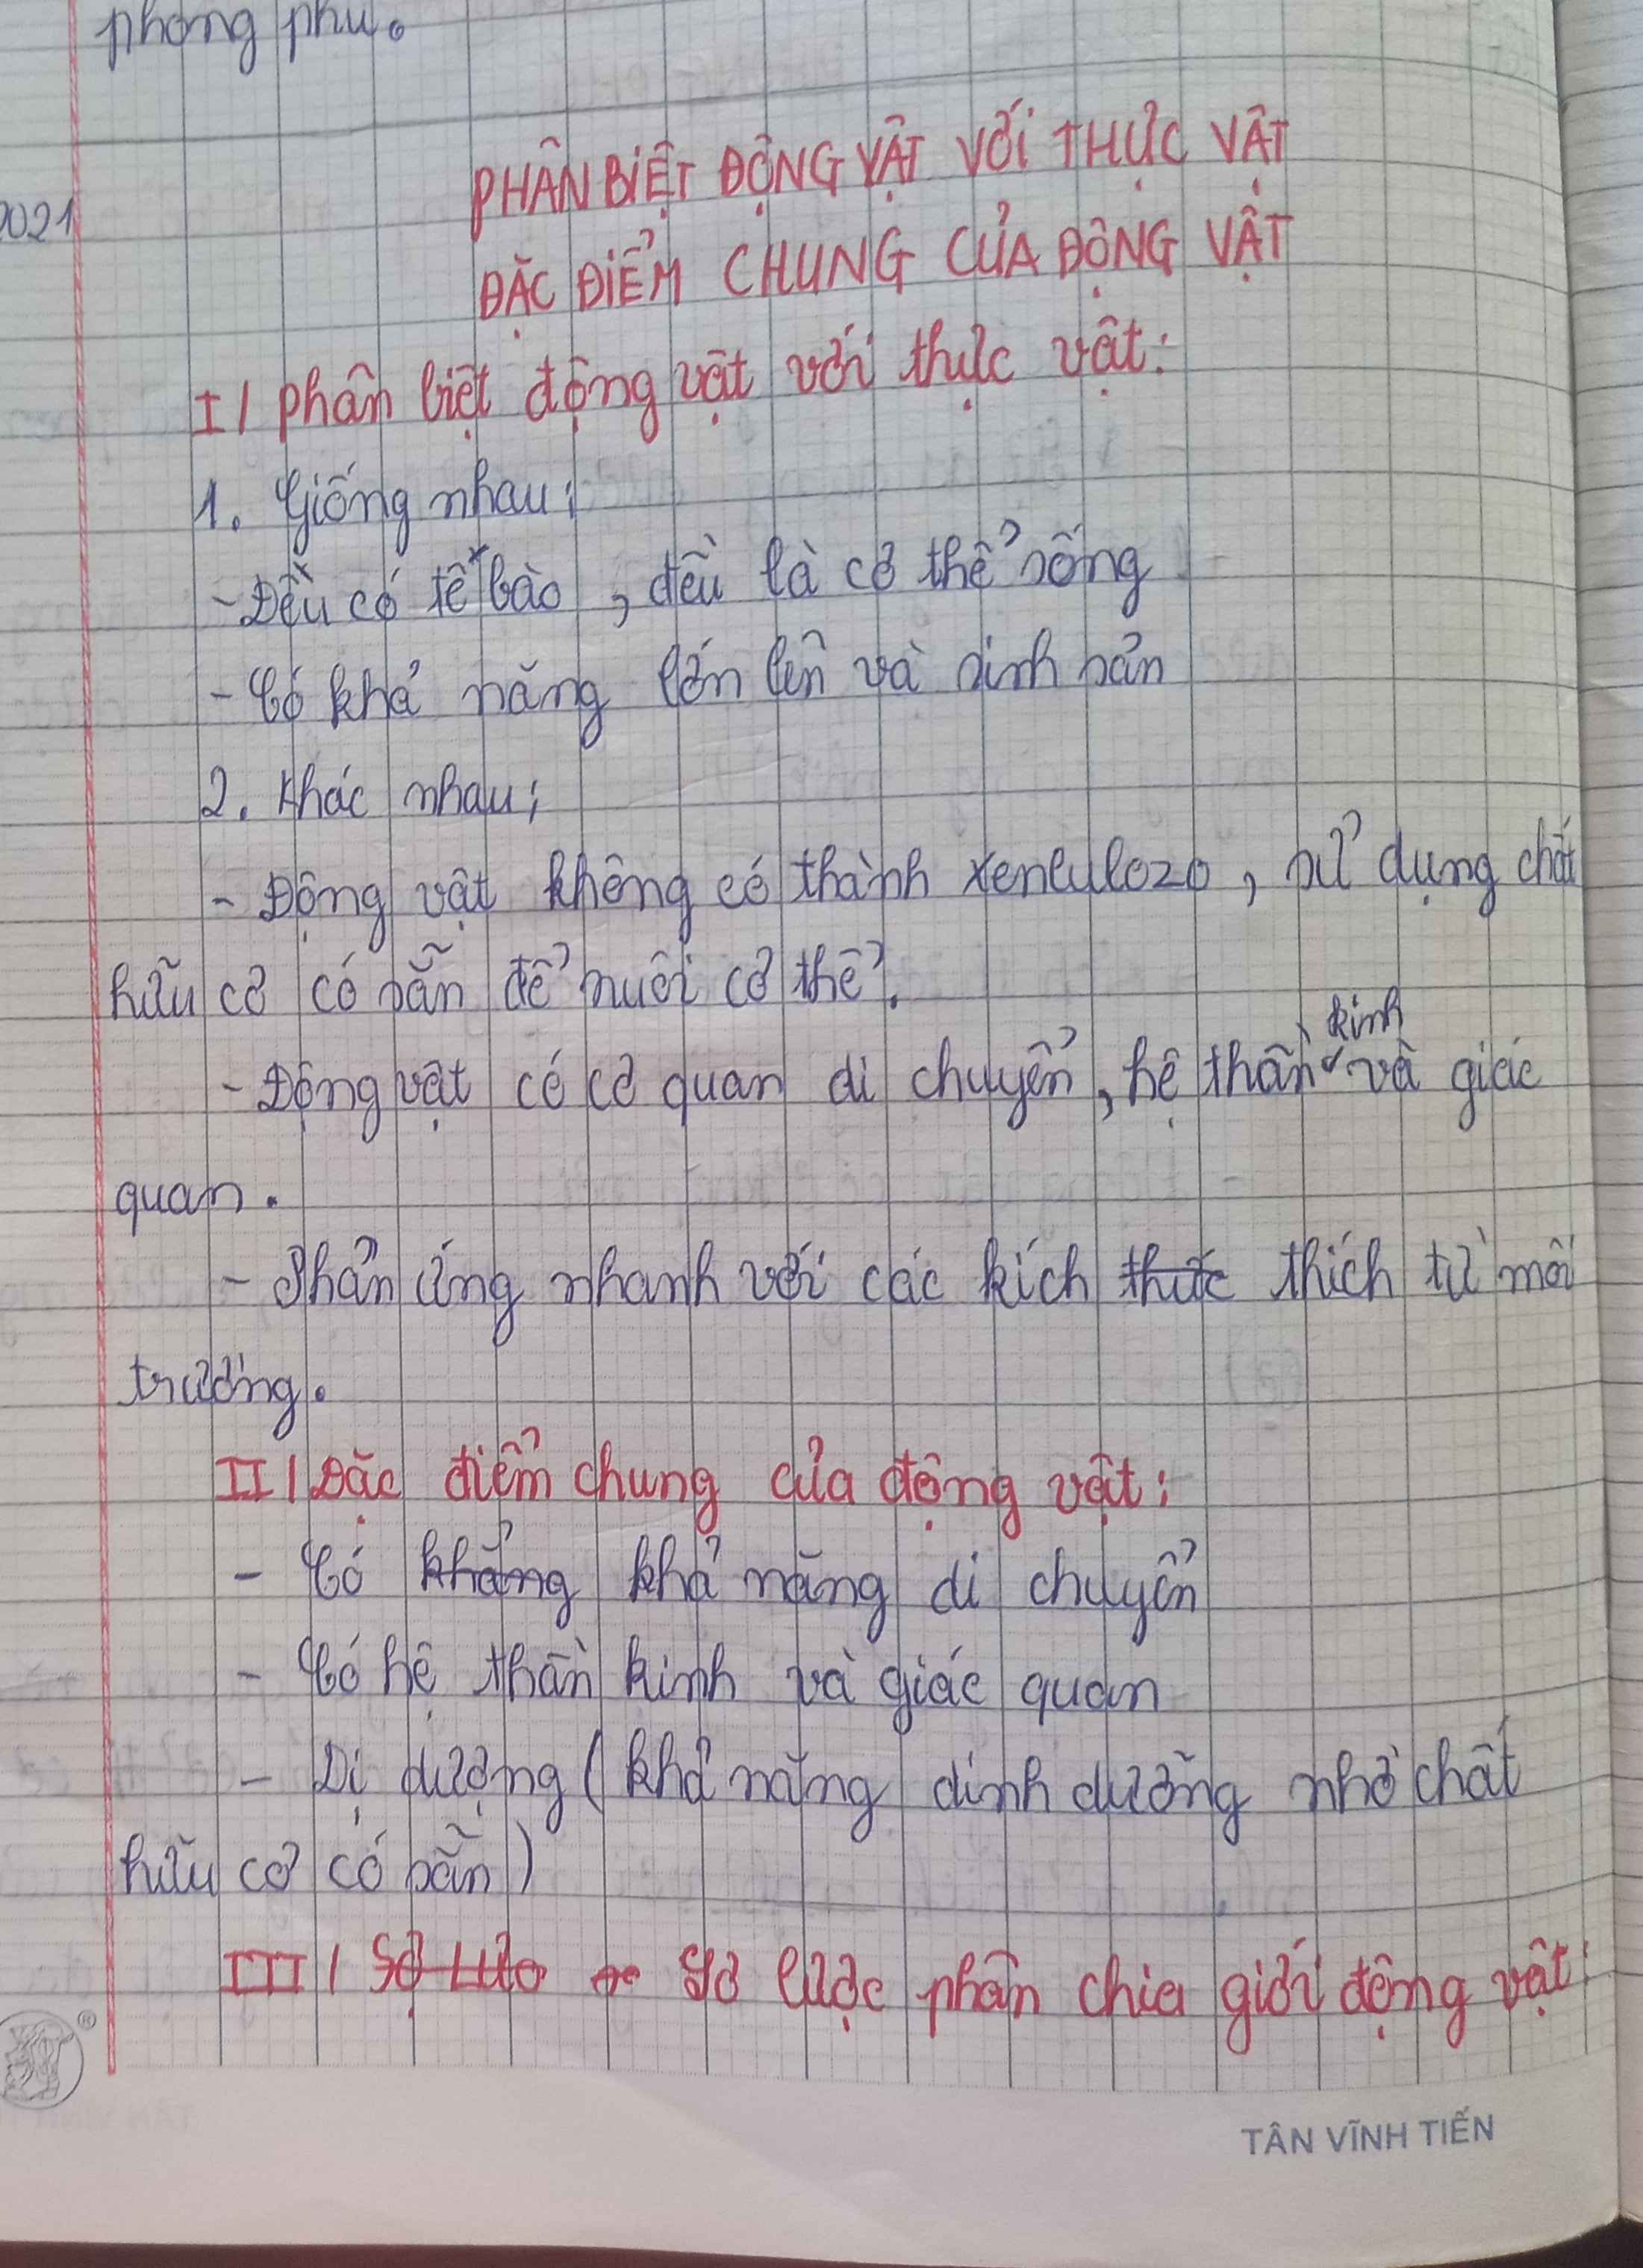 phong phú.
PHÂN BIỆT ĐỘNG VẬT VỚI THỰC VẬT
2021
ĐẶC ĐIỂM CHUNG CỦA ĐỘNG VẬT
I/ Phân biệt động vật với thực vật:
1. Giống nhau:
- Đều có tế bào, đều là cơ thể sống
- Có khả năng lớn lên và sinh sản
2. Khác nhau:
- Động vật không có thành xenlulozo, sử dụng chất
hữu cơ có sẵn để nuôi cơ thể.
kinh
- Động vật có cơ quan di chuyển, hệ thần và giác
quan.
- Phản ứng nhanh với các kích thức thích từ môi
trường.
II/ Đặc điểm chung của động vật:
- Có khẳng khả năng di chuyển
- Có hệ thần kinh và giác quan
- Dị dượng (khả năng dinh dưỡng nhờ chất
hữu cơ có sẵn)
III/ Sơ lược phân chia giới động vật:
TÂN VĨNH TIẾN